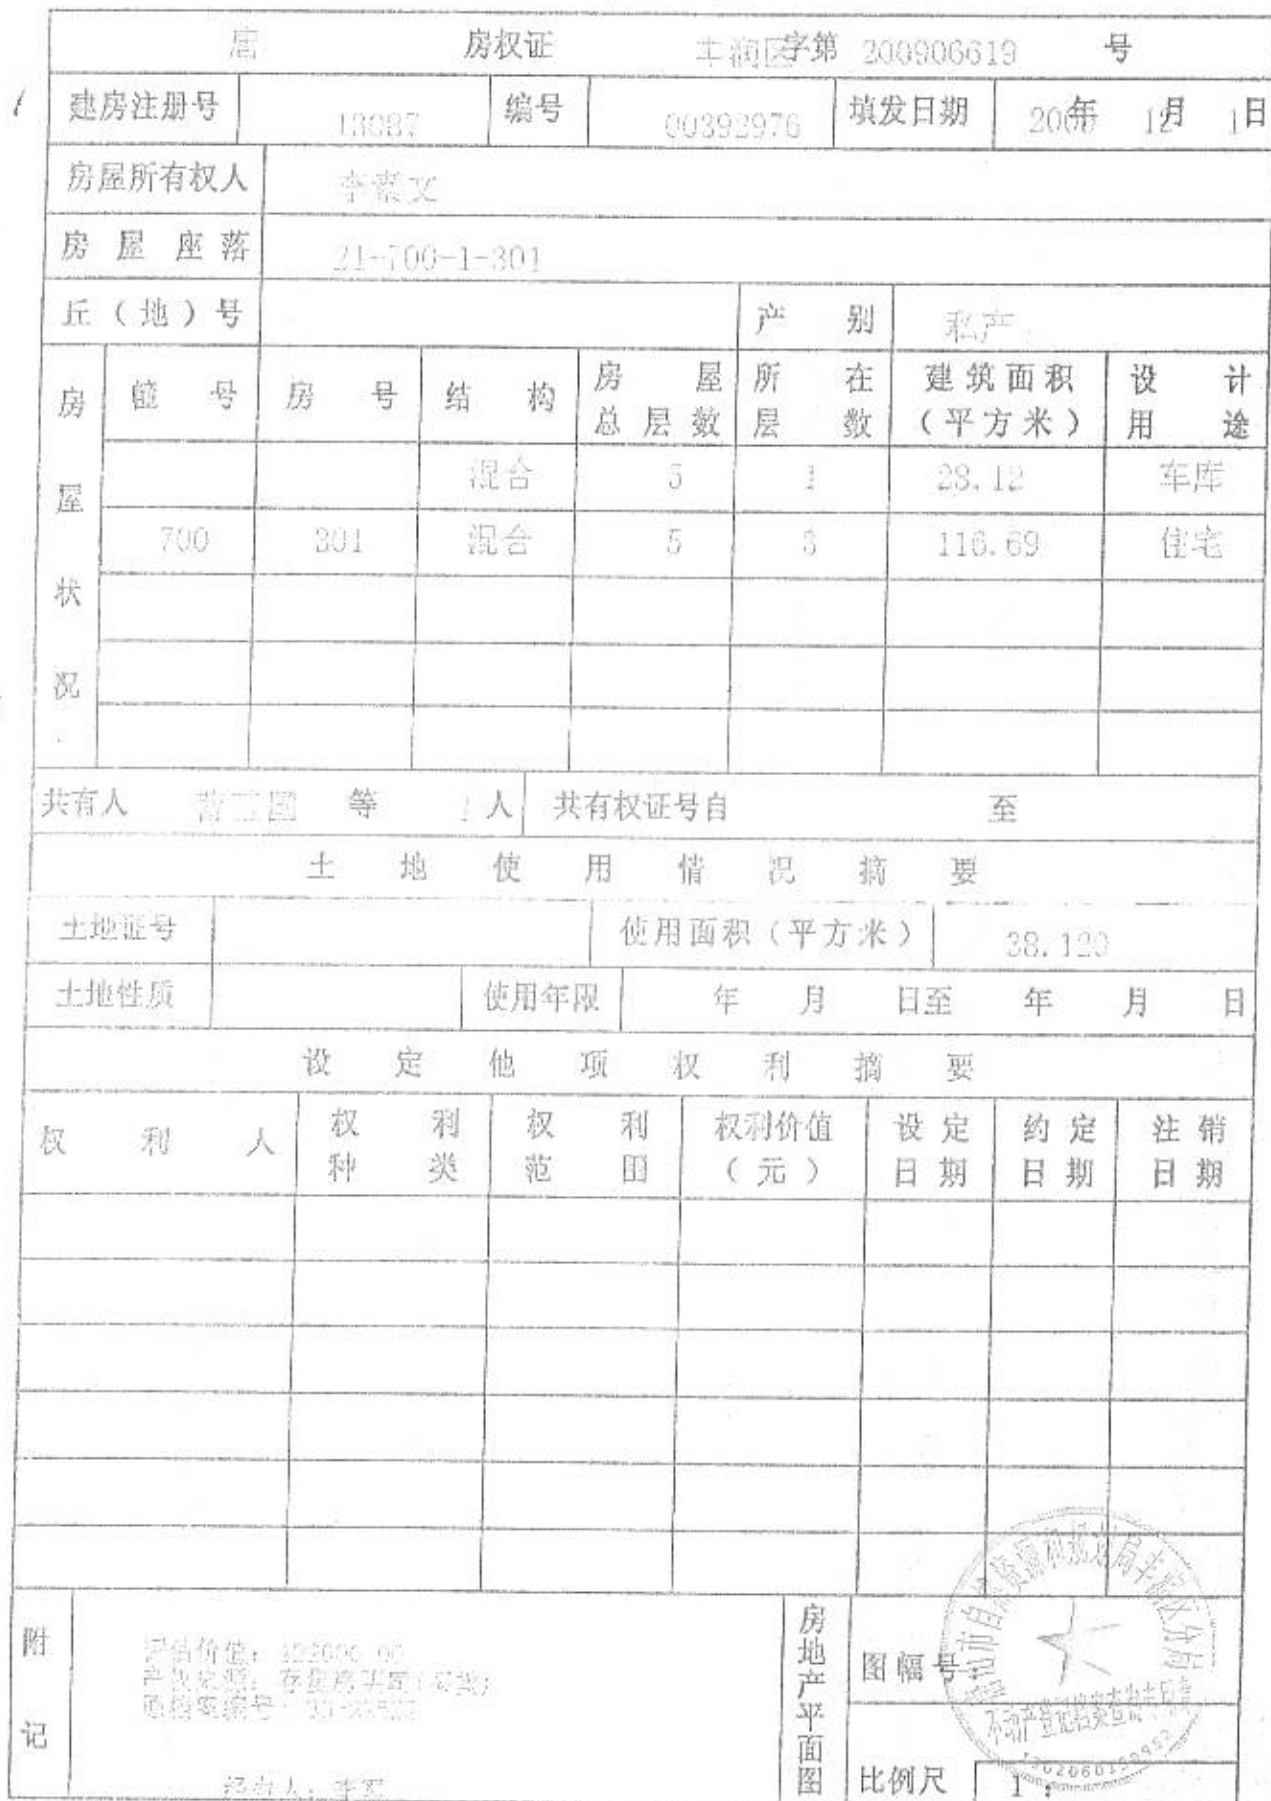 唐 房权证 丰润区字第 200906619 号
建房注册号 13087 编号 00392976 填发日期 年 12月 1日
房屋所有权人 李 文
房屋座落 21-700-1-301
丘（地）号 产别 私产
房屋状况 幢号 房号 结构 房屋总层数 所在层数 建筑面积（平方米） 设计用途
混合 5 1 28.12 车库
700 301 混合 5 3 116.69 住宅
共有人 等 1人 共有权证号自 至
土地使用情况摘要
土地证号 使用面积（平方米） 38.120
土地性质 使用年限 年 月 日至 年 月 日
设定他项权利摘要
权利人 权利种类 权利范围 权利价值（元） 设定日期 约定日期 注销日期
附记
评估价值：
产权来源：存量房买卖
原档案编号
经办人：李军
房地产平面图
图幅号：
比例尺 1：
唐山市自然资源和规划局丰润区分局
不动产登记档案查询专用章